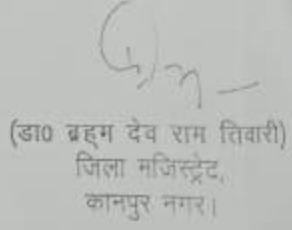 (डा0 ब्रह्म देव राम तिवारी)
जिला मजिस्ट्रेट,
कानपुर नगर।